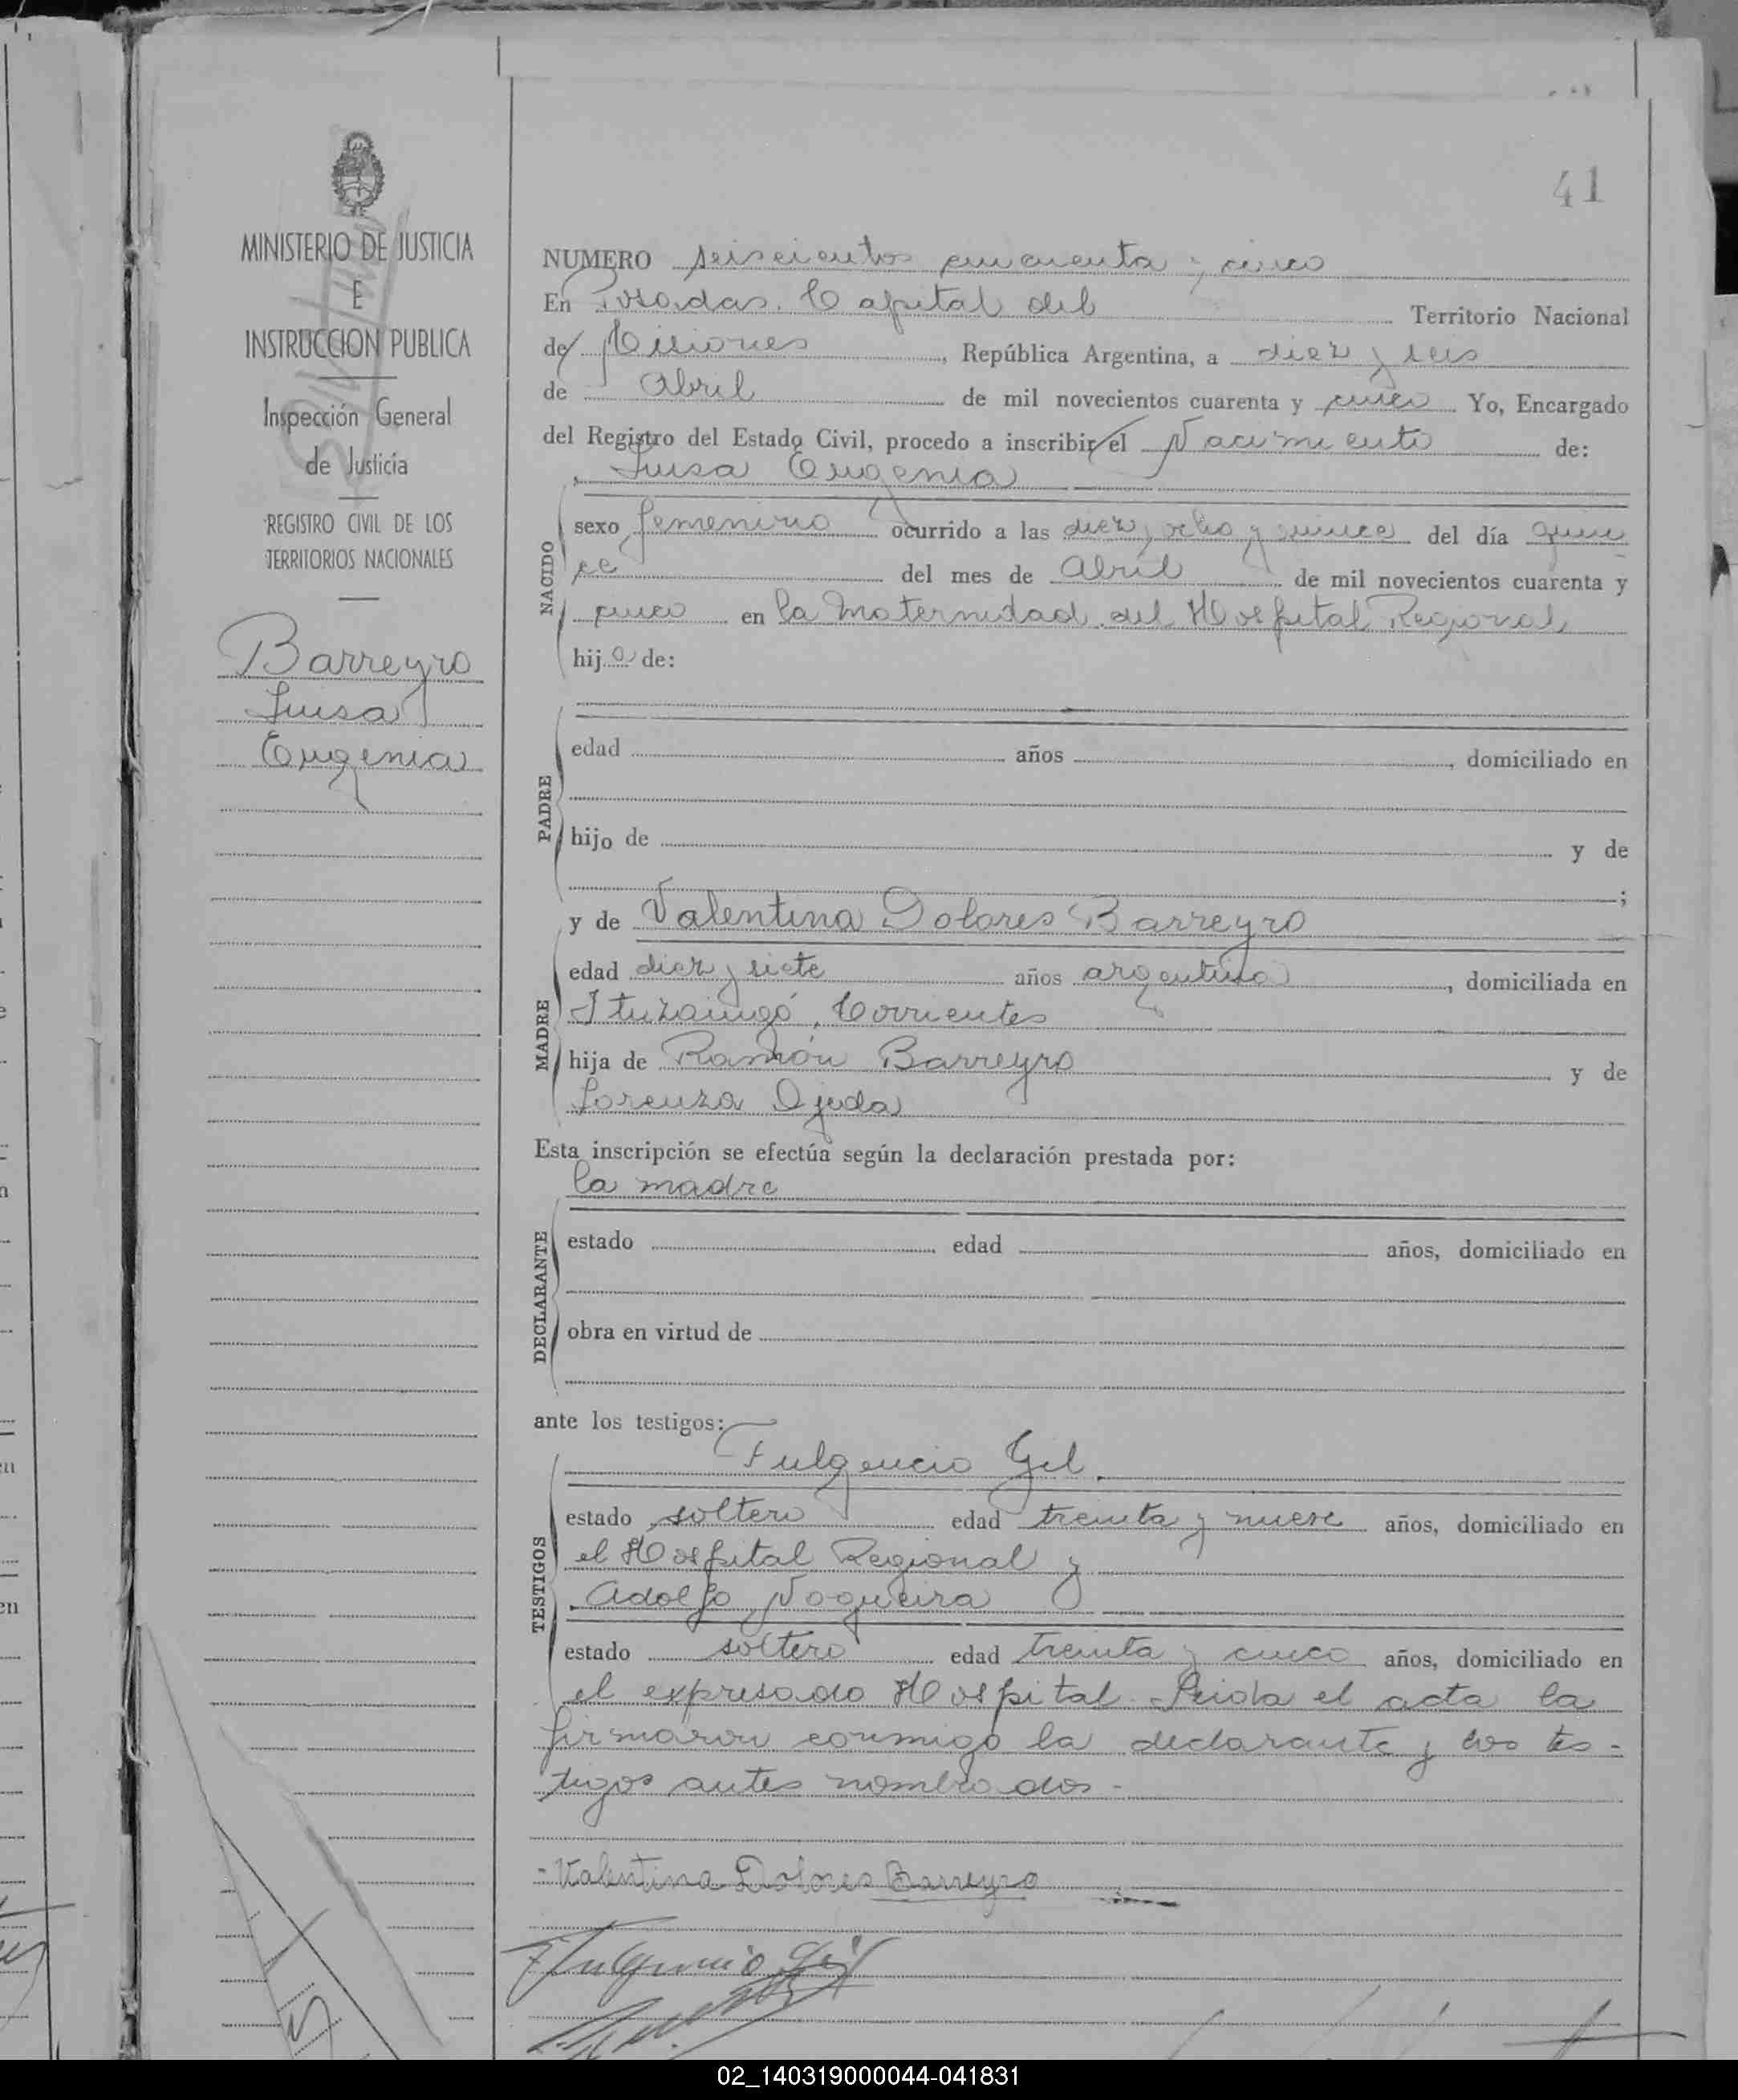 41
MINISTERIO DE JUSTICIA
E
INSTRUCCION PUBLICA
Inspección General
de Justicia
REGISTRO CIVIL DE LOS
TERRITORIOS NACIONALES
Barreyro
Luisa
Eugenia
NUMERO seiscientos cincuenta y cinco
En Posadas. Capital del Territorio Nacional
de Misiones, República Argentina, a diez y seis
de Abril de mil novecientos cuarenta y cinco Yo, Encargado
del Registro del Estado Civil, procedo a inscribir el Nacimiento de:
Luisa Eugenia
NACIDO
sexo femenino ocurrido a las diez y ocho y quince del día quin
ce del mes de Abril de mil novecientos cuarenta y
cinco en la Maternidad del Hospital Regional
hija de:
PADRE
edad años , domiciliado en
hijo de y de
;
y de Valentina Dolores Barreyro
MADRE
edad diez y siete años argentina, domiciliada en
Ituzaingó, Corrientes
hija de Ramón Barreyro y de
Lorenza Ojeda
Esta inscripción se efectúa según la declaración prestada por:
la madre
DECLARANTE
estado edad años, domiciliado en
obra en virtud de
ante los testigos:
Fulgencio Gil.
TESTIGOS
estado soltero edad treinta y nueve años, domiciliado en
el Hospital Regional y
Adolfo Nogueira
estado soltero edad treinta y cinco años, domiciliado en
el expresado Hospital. Leida el acta la
firmaron conmigo la declarante y los tes-
tigos antes nombrados-
-Valentina Dolores Barreyro
Fulgencio Gil
02_140319000044-041831